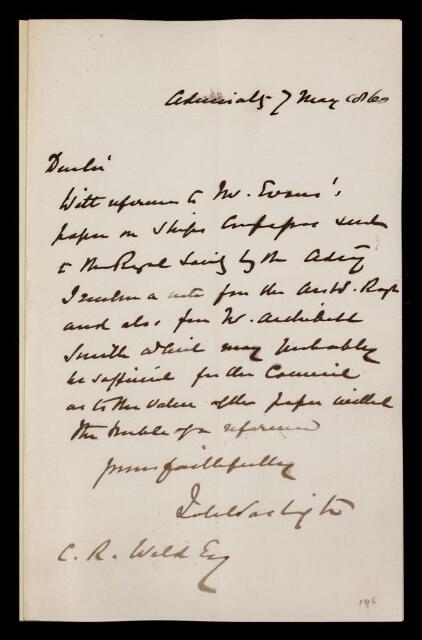 Admiralty 7 May 1860
Dear Sir
With reference to Mr. Evans's
paper on Ships Compasses sent
to the Royal Society by the Admty
I enclose a note from the Astr. Royl
and also from Mr. Archibald
Smith which may probably
be sufficient for the Council
as to the value of the paper without
the trouble of a reference
yours faithfully
John Washington
C. R. Weld Esq
196